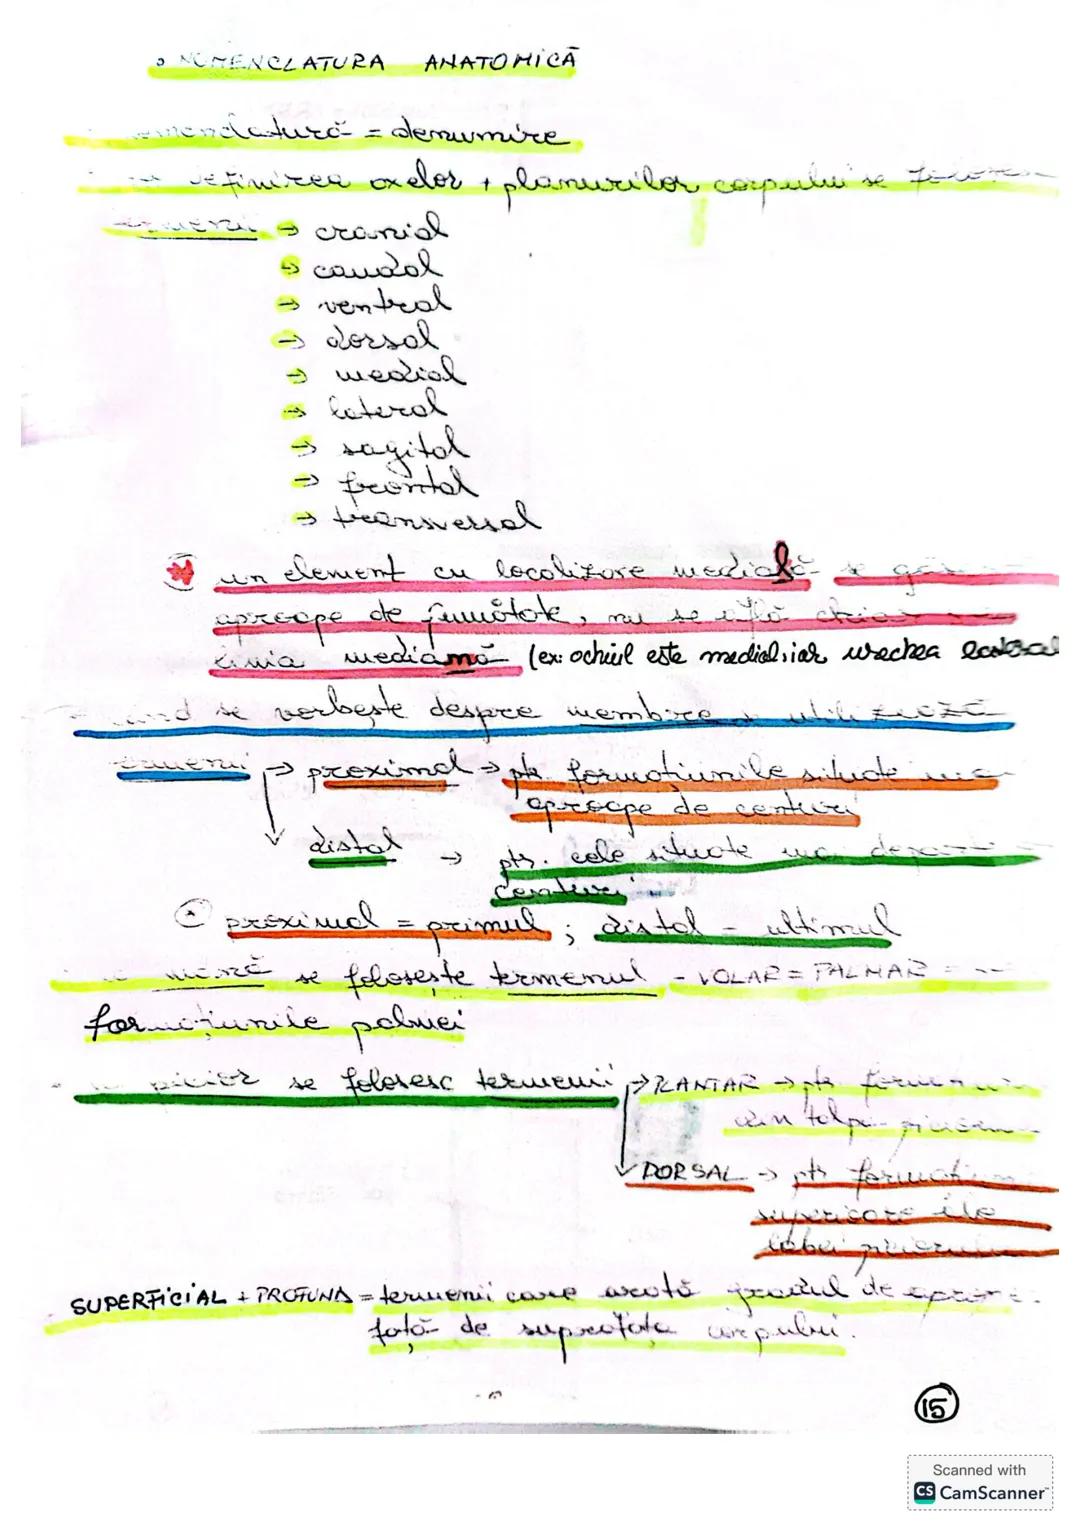 NOMENCLATURA ANATOMICĂ
nomenclatură = denumire
definirea axelor + planurilor corpului se folosesc
termenii → cranial
→ caudal
→ ventral
→ dorsal
→ medial
→ lateral
→ sagital
→ frontal
→ transversal
un element cu localizare medială se
aproape de jumătate, nu se află chiar
linia mediană (ex: ochiul este medial, iar urechea lateral
când se vorbește despre membre, utilizează
termenii → proximal → ptr. formațiunile situate mai
aproape de centuri
distal → ptr. cele situate mai
centuri
proximal = primul ; distal - ultimul
mână se folosește termenul - VOLAR = PALMAR =
formațiunile palmei
picior se folosesc termenii → PLANTAR → ptr
din talpa piciorului
DORSAL → ptr
superioare ale
labei piciorului
SUPERFICIAL + PROFUND = termenii care arată gradul de
față de suprafața corpului.
15
Scanned with
CS CamScanner